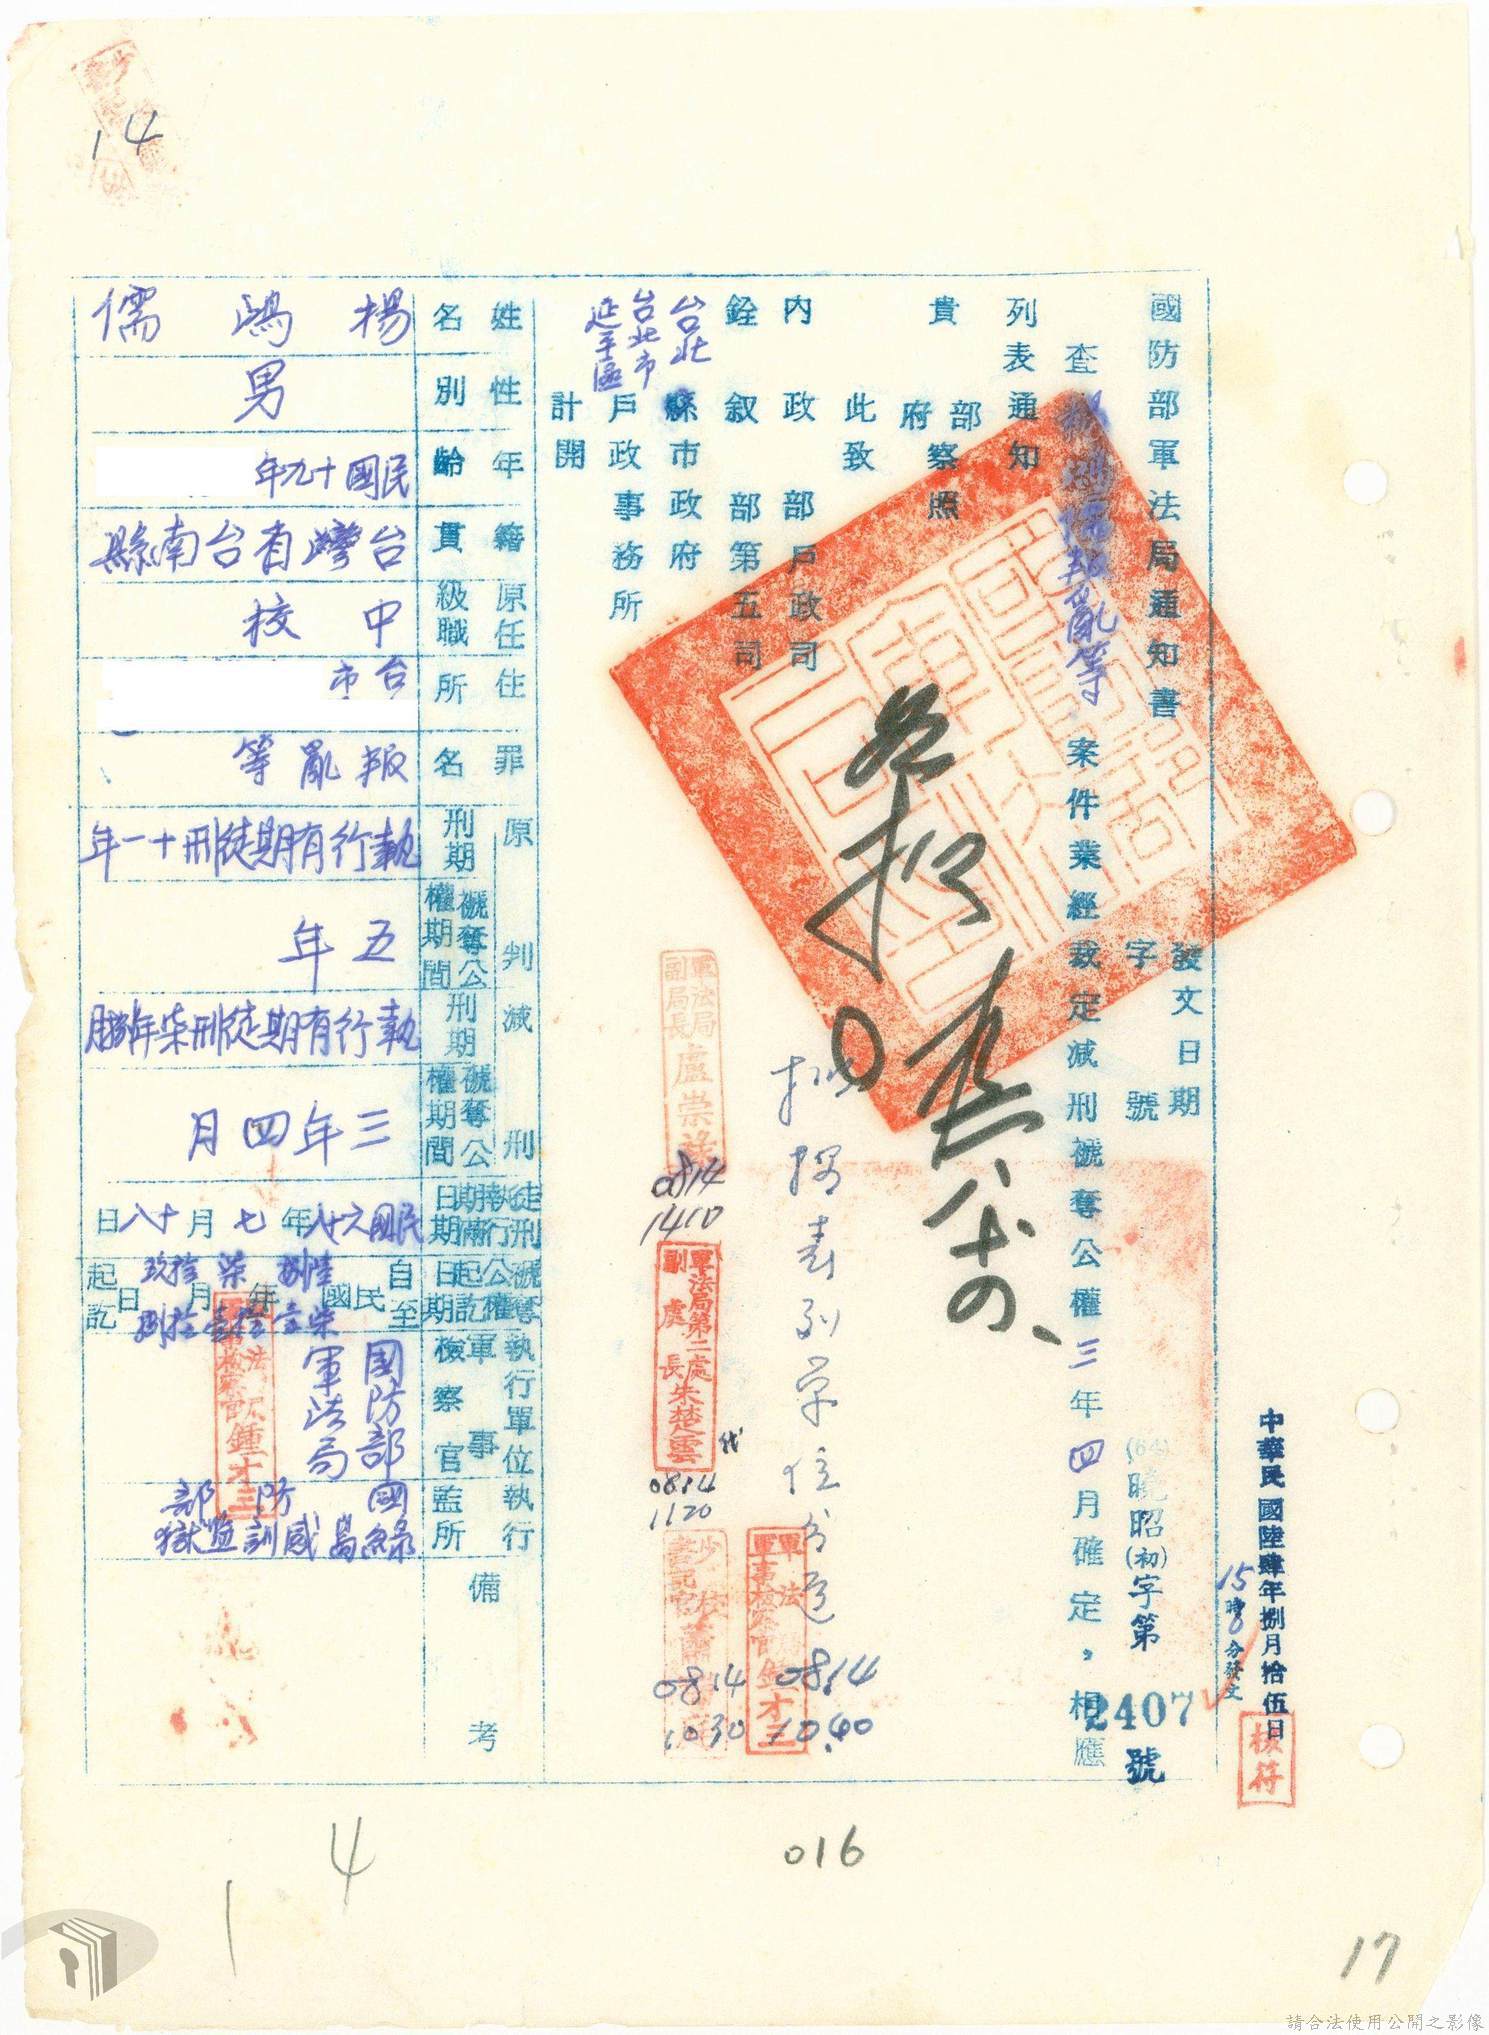 國防部軍法局通知書
發文日期
字號
中華民國陸肆年捌月拾伍日
15時0分發文
(64)曉昭(初)字第2407號
校符
查楊鴻儒叛亂等案件業經裁定減刑褫奪公權三年四月確定，相應
列表通知
貴部府察照
此致
內政部戶政司
銓敘部第五司
台北縣市政府
台北市延平區戶政事務所
計開
擬
0814
10.40
0814
1030
軍法局副局長盧崇祿
0814
1410
軍法局第二處副處長朱楚雲
代
0814
1120
軍法局軍事檢察官鍾才三
姓名
楊鴻儒
性別
男
年齡
民國十九年
籍貫
台灣省台南縣
原任級職
中校
住所
台市
罪名
叛亂等
原判
刑期
執行有期徒刑十一年
褫奪公權期間
五年
減刑
刑期
執行有期徒刑柒年捌月
褫奪公權期間
三年四月
徒刑執行期滿日期
民國六十八年七月十八日
褫奪公權起訖日期
自民國陸捌年柒月拾玖日起
至柒壹拾壹拾捌訖
執行單位軍事檢察官
國防部軍法局
軍法局軍事檢察官鍾才三
執行監所
國防部綠島感訓監獄
備考
14
14
016
17
請合法使用公開之影像